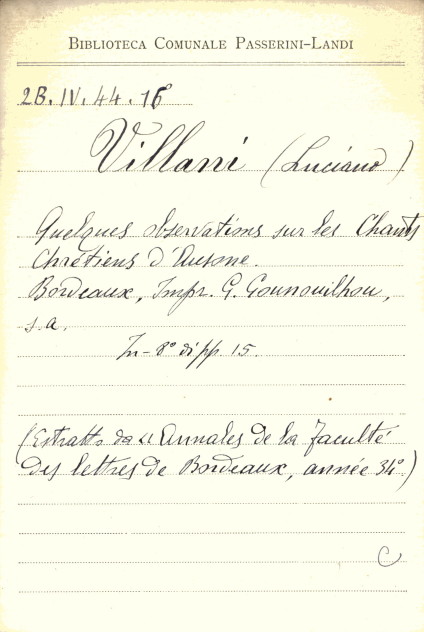 BIBLIOTECA COMUNALE PASSERINI-LANDI
2B.IV.44.16°
Villani (Luciano)
Quelques observations sur les Chants
Chrétiens d'Ausone.
Bordeaux, Impr. G. Gounouilhou,
s.a.
In-8° di pp. 15.
(Estratto da "Annales de la Faculté
des lettres de Bordeaux, année 34°)
C